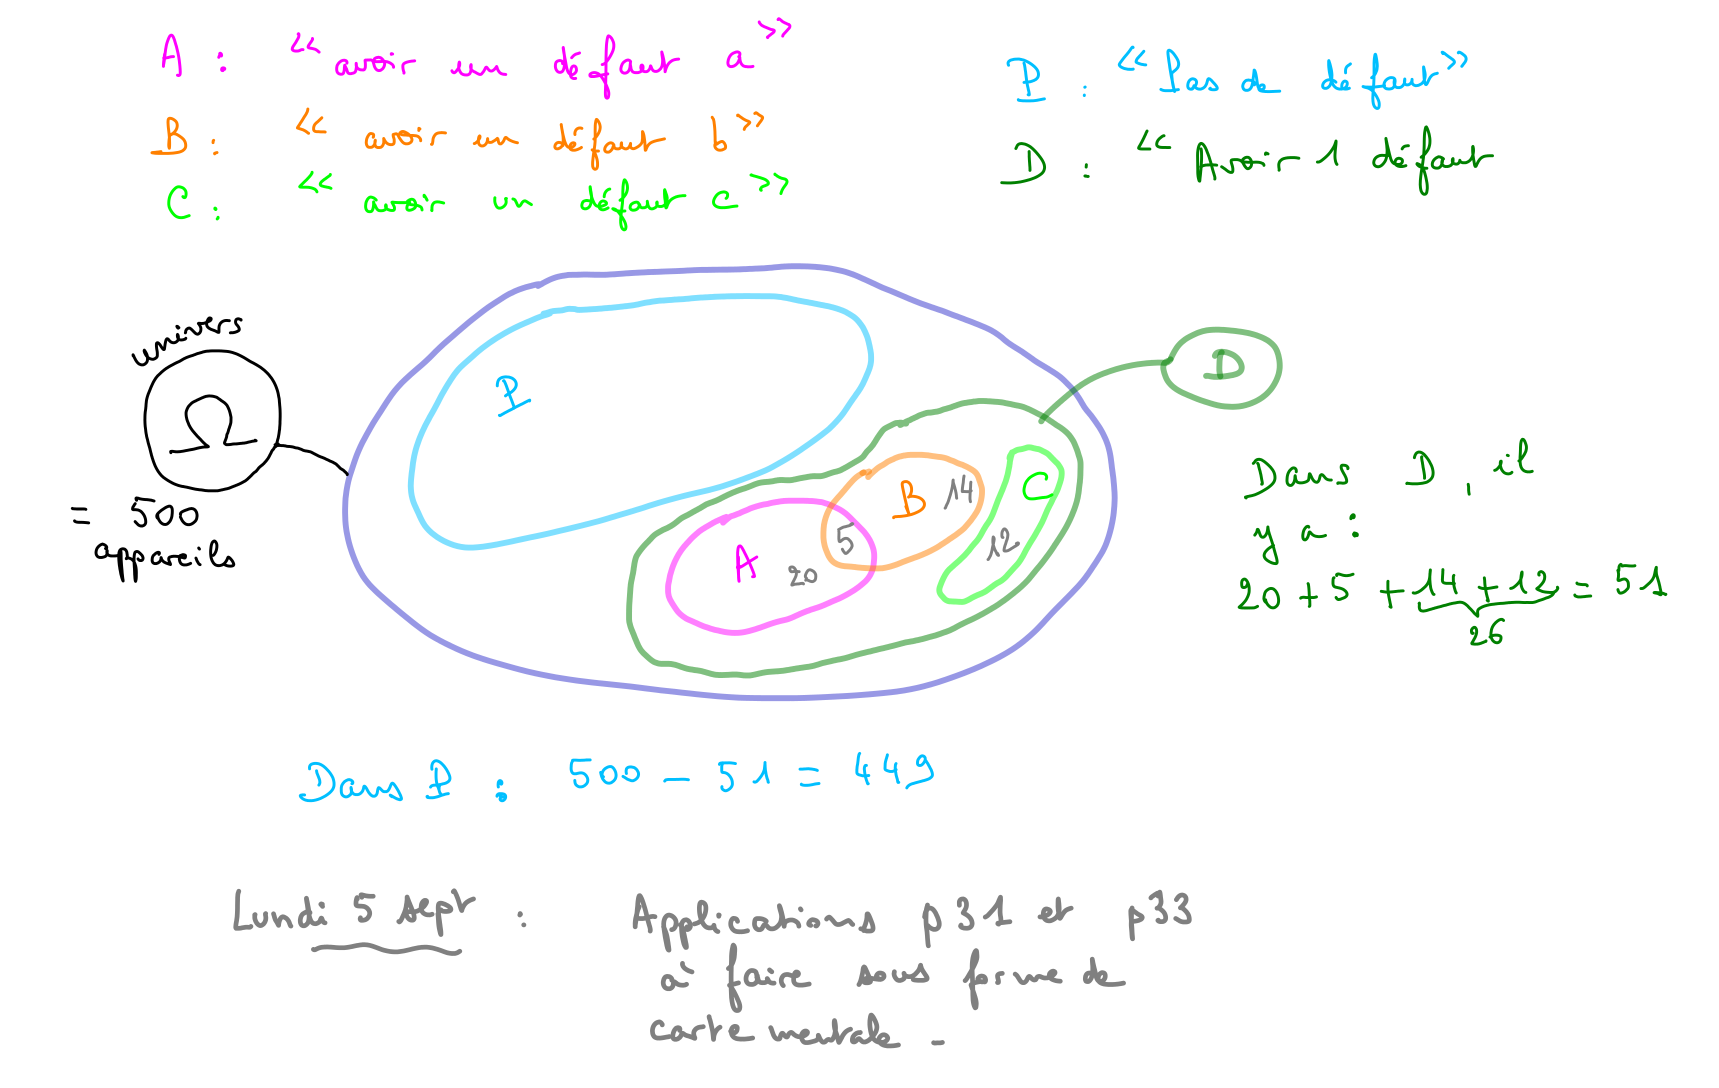 A : << avoir un défaut a >>
B : << avoir un défaut b >>
C : << avoir un défaut c >>
P : << Pas de défaut >>
D : << Avoir 1 défaut
univers
Ω
= 500
appareils
P
D
A
20
5
B
14
C
12
Dans D, il
y a :
20 + 5 + 14 + 12 = 51
26
Dans P : 500 - 51 = 449
Lundi 5 sept : Applications p31 et p33
à faire sous forme de
carte mentale -